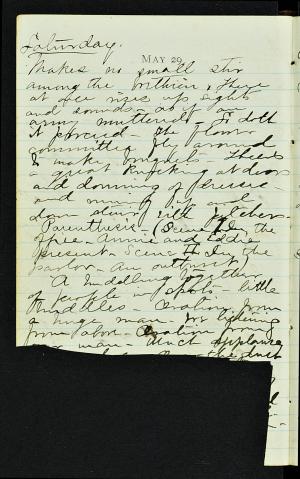 Saturday.
MAY 29
Makes no small stir
among the within. There
at once rises up sights
and sounds as if an
army muttered. So doth
it proceed. The flower
committee fly around
& make bouquets. There's
a great knocking at doors
and donning of dresses
and running up and
down stairs with pitchers.
Parenthesis. Scene I. In the
office. Annie and Eddie
present. Scene II In the
parlor. An outburst.
A huddling together
of people in spots - little
huddles. Oration from
a huge man. for
from above. Oration from
man. Much applause
the dust